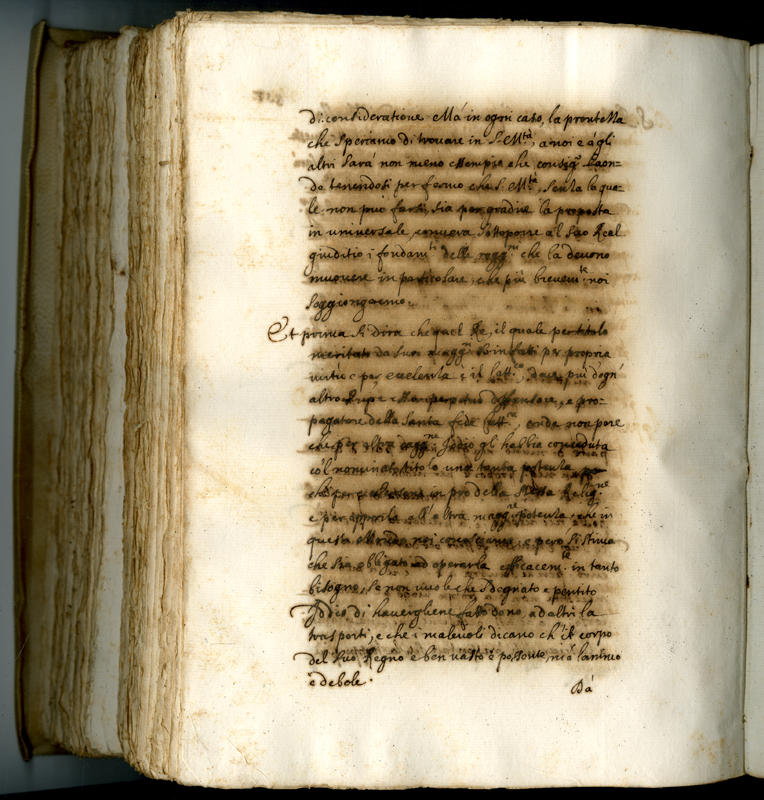 di consideratione. Mà in ogni caso, la prontezza
che speriamo di trovare in S. M.tà, a noi e à gli
altri sarà non meno essempio che
do tenendosi per fermo che S. M.tà, senza la qua-
le non può farsi, sia per gradire la proposta
in universale, conuerrà sottoporre al suo Real
giuditio i fondam.ti delle ragg.ni che la deuono
muouere in particolare, che più breuem.te noi
soggiongiamo.
Et prima si dirà che quel Rè, il quale per titolo
meritato da suoi magg.ri per propria
uirtù e per eccelenza è il Catt.co, deue più d'ogn'
altro e perpetuo diffensore, e pro-
pagatore della Santa fede Catt.ca, onde non pare
che per altra ragg.ne Iddio gli habbia conceduta
co'l nominato titolo una tanta potenza
che per in pro della stessa Relig.ne
e per opporla all'altra magg.re potenza, che in
questo Mondo noi conosciamo; e però si stima
che sia obbligato ad operarla efficacem.te in tanto
bisogno, se non uuole che sdegnato e pentito
Iddio di hauergliene fatto dono, ad altri la
trasporti, e che i maleuoli dicano ch'il corpo
del suo Regno è ben uasto e possente, mà l'animo
è debole.
Dà